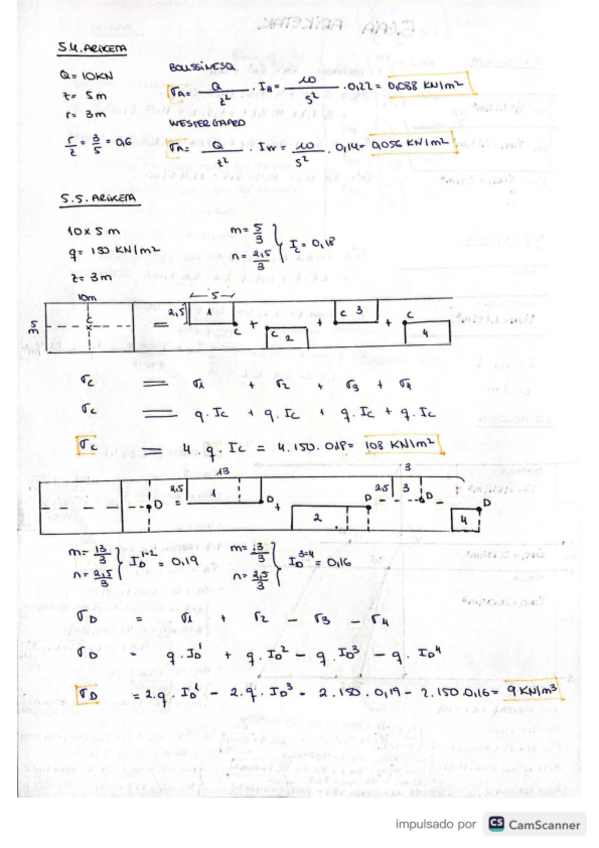 5.4. ARIKETA
Q = 10KN
z = 5m
r = 3m
r/z = 3/5 = 0,6
BOUSSINESQ
σA = Q/z² · IB = 10/5² · 0,22 = 0,088 KN/m²
WESTERGAARD
σA = Q/z² · IW = 10/5² · 0,14 = 0,056 KN/m²
5.5. ARIKETA
10 x 5 m
q = 150 KN/m²
z = 3m
m = 5/3
n = 2,5/3
Ic = 0,18
10m
5m
C
=
2,5
5
1
C
+
C
2
+
C
3
+
C
4
σC = σ1 + σ2 + σ3 + σ4
σC = q. Ic + q. Ic + q. Ic + q. Ic
σC = 4. q. Ic = 4. 150. 0,18 = 108 KN/m²
D
=
2,5
13
1
D
+
2
D
-
2,5
3
3
D
-
4
D
m = 13/3
n = 2,5/3
ID 1-2 = 0,19
n = 2,5/3
ID 3-4 = 0,16
σD = σ1 + σ2 - σ3 - σ4
σD = q. ID¹ + q. ID² - q. ID³ - q. ID⁴
σD = 2. q. ID¹ - 2. q. ID³ = 2. 150. 0,19 - 2. 150. 0,16 = 9 KN/m³
impulsado por CS CamScanner